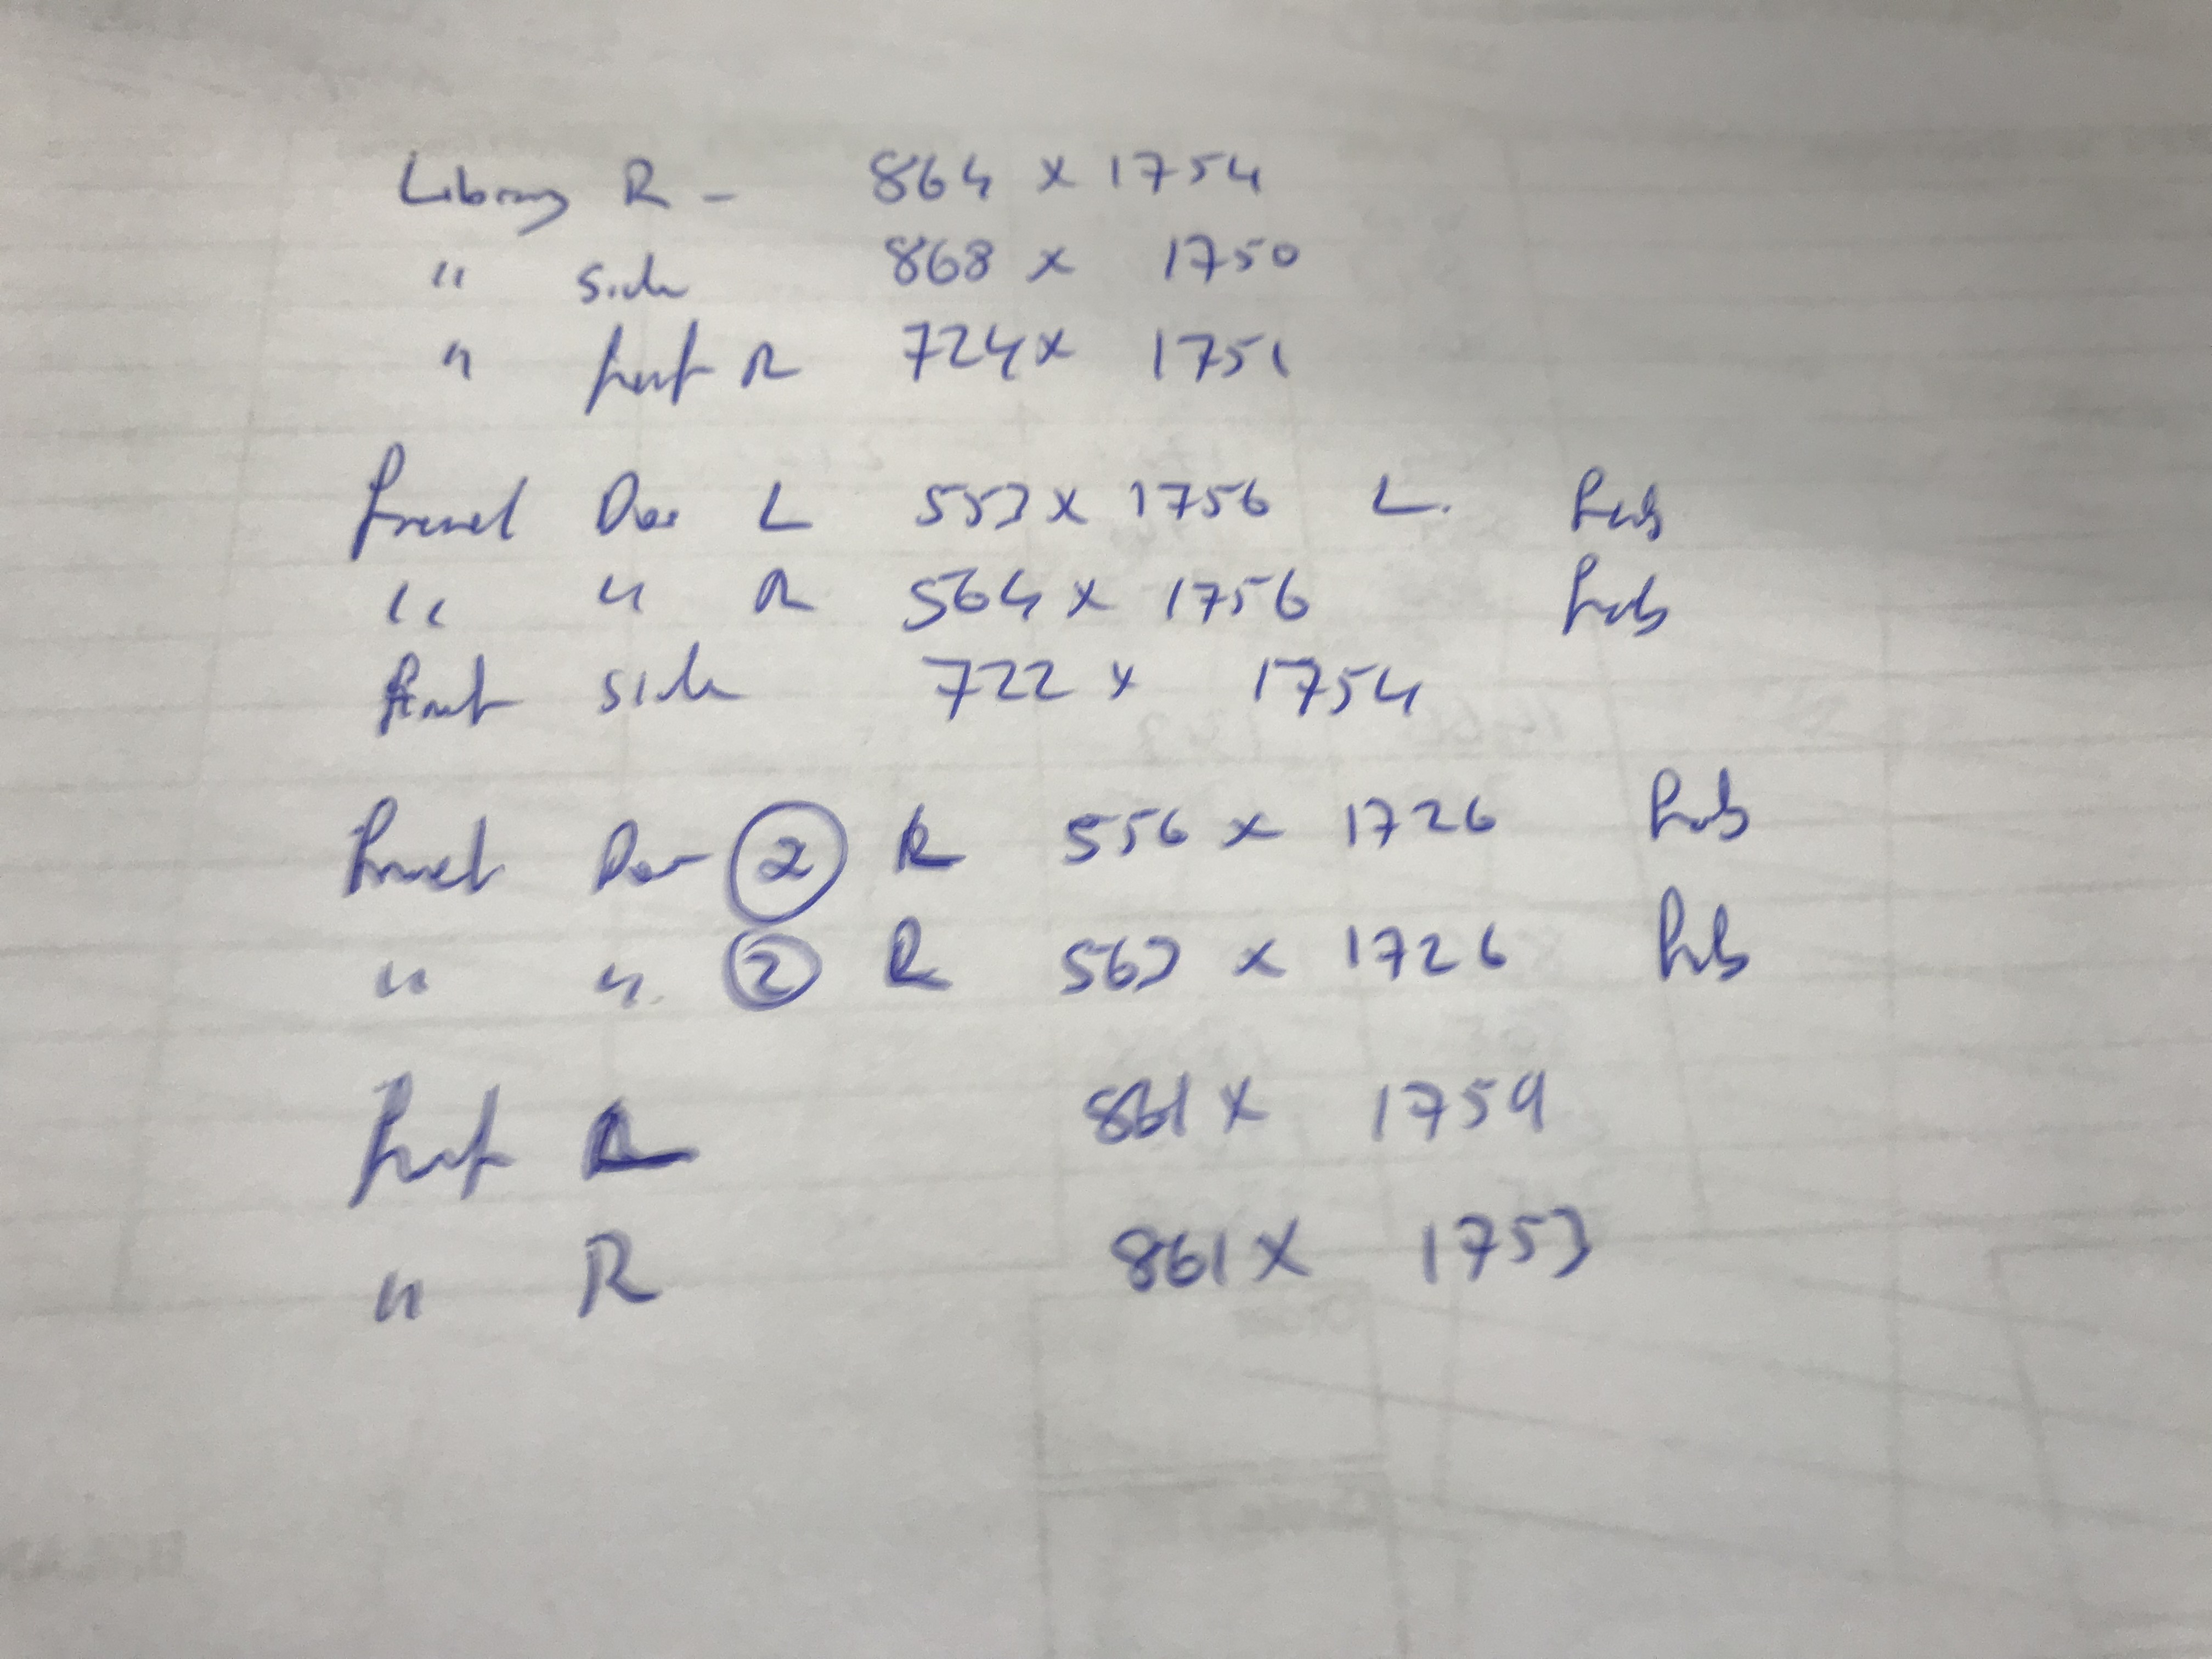 Library R - 864 x 1754
" side 868 x 1750
" front R 724 x 1751
French Door L 553 x 1756 L.
" " R 564 x 1756
Front side 722 x 1754
French Door 2 R 556 x 1726
" " 2 R 563 x 1726
Front 861 x 1759
" R 861 x 1753